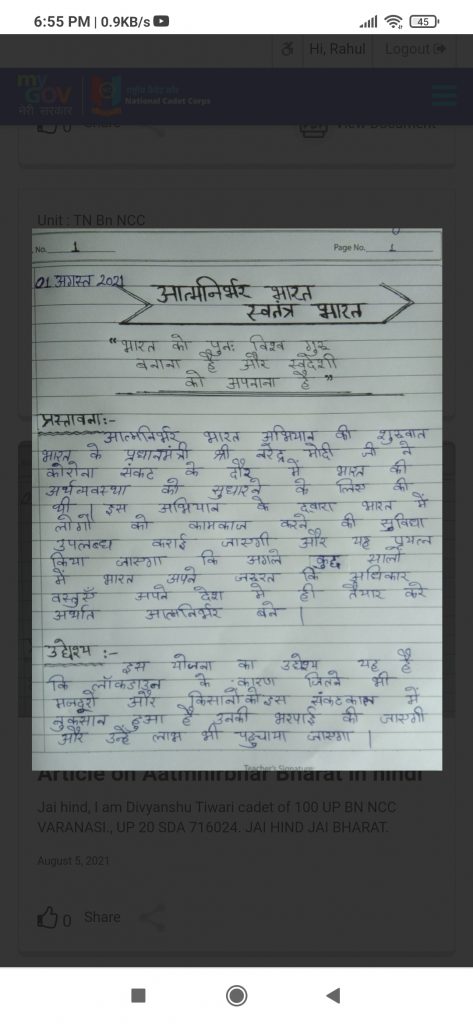 6:55 PM | 0.9KB/s
45
Hi, Rahul
Logout
my GOV
मेरी सरकार
National Cadet Corps
0 Share
View Document
Unit : TN Bn NCC
No. 1
Page No. 1
01 अगस्त 2021
आत्मनिर्भर भारत
स्वतंत्र भारत
"भारत को पुनः विश्व गुरू
बनाना है और स्वदेशी
को अपनाना है"
प्रस्तावनाः-
आत्मनिर्भर भारत अभियान की शुरूवात
भारत के प्रधानमंत्री श्री नरेन्द्र मोदी जी ने
कोरोना संकट के दौर में भारत की
अर्थव्यवस्था को सुधारने के लिए की
थी। इस अभियान के दवारा भारत में
लोगो को कामकाज करने की सुविधा
उपलब्ध कराई जाएगी और यह प्रयत्न
किया जाएगा कि अगले कुछ सालों
में भारत अपने जरूरत कि अधिकार
वस्तुएँ अपने देश मे ही तैयार करे
अर्थात आत्मनिर्भर बने।
उद्देश्य :-
इस योजना का उद्देश्य यह है
कि लॉकडाउन के कारण जितने भी
मजदूरों और किसानों को इस संकटकाल में
नुकसान हुआ है उनकी भरपाई की जाएगी
और उन्हें लाभ भी पहुचाया जाएगा।
Teacher's Signature
Article on Aatmnirbhar Bharat in hindi
Jai hind, I am Divyanshu Tiwari cadet of 100 UP BN NCC
VARANASI., UP 20 SDA 716024. JAI HIND JAI BHARAT.
August 5, 2021
0 Share